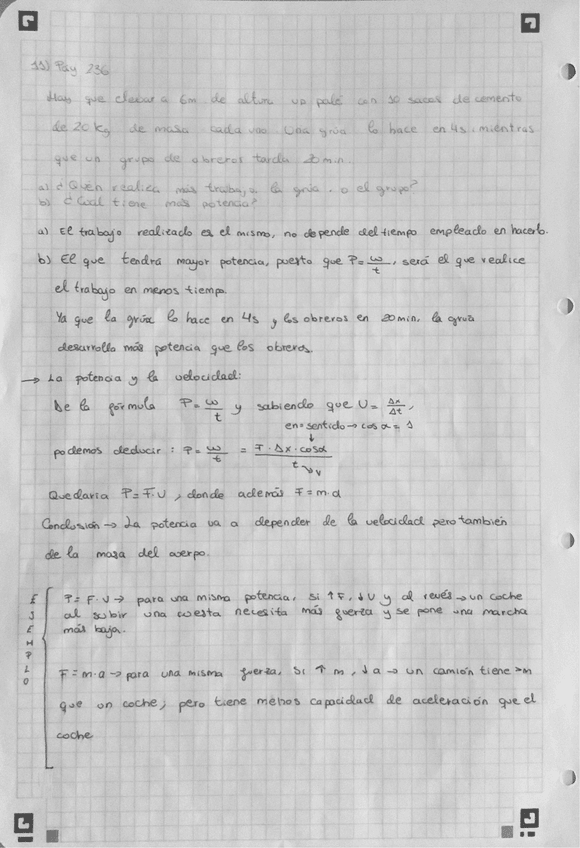 11) Pág 236
Hay que elevar a 6m de altura un palé con 30 sacos de cemento
de 20 Kg de masa cada uno. Una grúa lo hace en 4s, mientras
que un grupo de obreros tarda 20 min.
a) ¿Quén realiza más trabajo, la grúa o el grupo?
b) ¿Cuál tiene más potencia?
a) El trabajo realizado es el mismo, no depende del tiempo empleado en hacerlo.
b) El que tendrá mayor potencia, puesto que P = ω/t, será el que realice
el trabajo en menos tiempo.
Ya que la grúa lo hace en 4s y los obreros en 20 min. la grúa
desarrolla más potencia que los obreros.
→ La potencia y la velocidad:
De la fórmula P = ω/t y sabiendo que U = Δx/Δt,
en = sentido → cos α = 1
podemos deducir: P = ω/t = F · Δx · cosα / t → v
Quedaría P = F · U, donde además F = m·a
Conclusión → La potencia va a depender de la velocidad pero también
de la masa del cuerpo.
EJEMPLO
P = F · U → para una misma potencia, si ↑F, ↓U y al revés → un coche
al subir una cuesta necesita más fuerza y se pone una marcha
más baja.
F = m·a → para una misma fuerza, si ↑ m, ↓ a → un camión tiene > m
que un coche, pero tiene menos capacidad de aceleración que el
coche